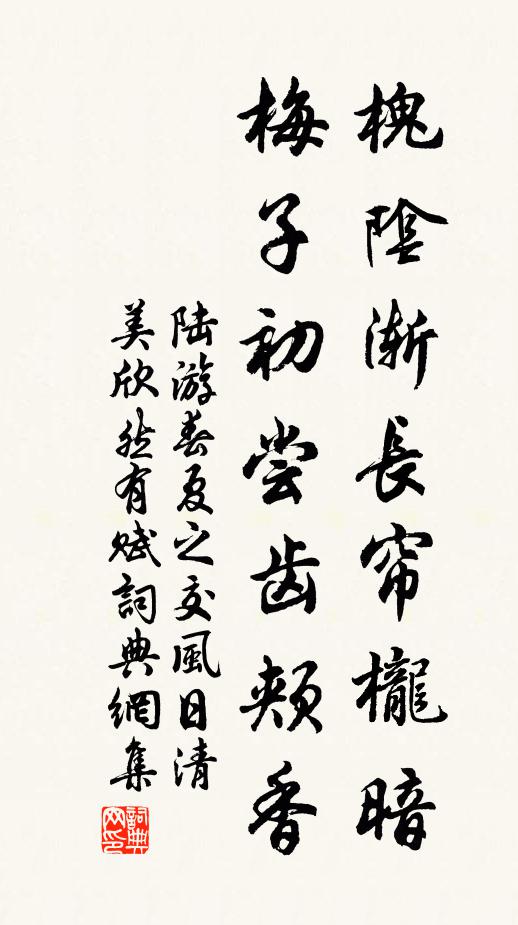 槐陰漸長帘櫳暗
梅子初尝齿頰香
陆游春夏之交風日清
美欣然有赋詞典網集
詞典網印